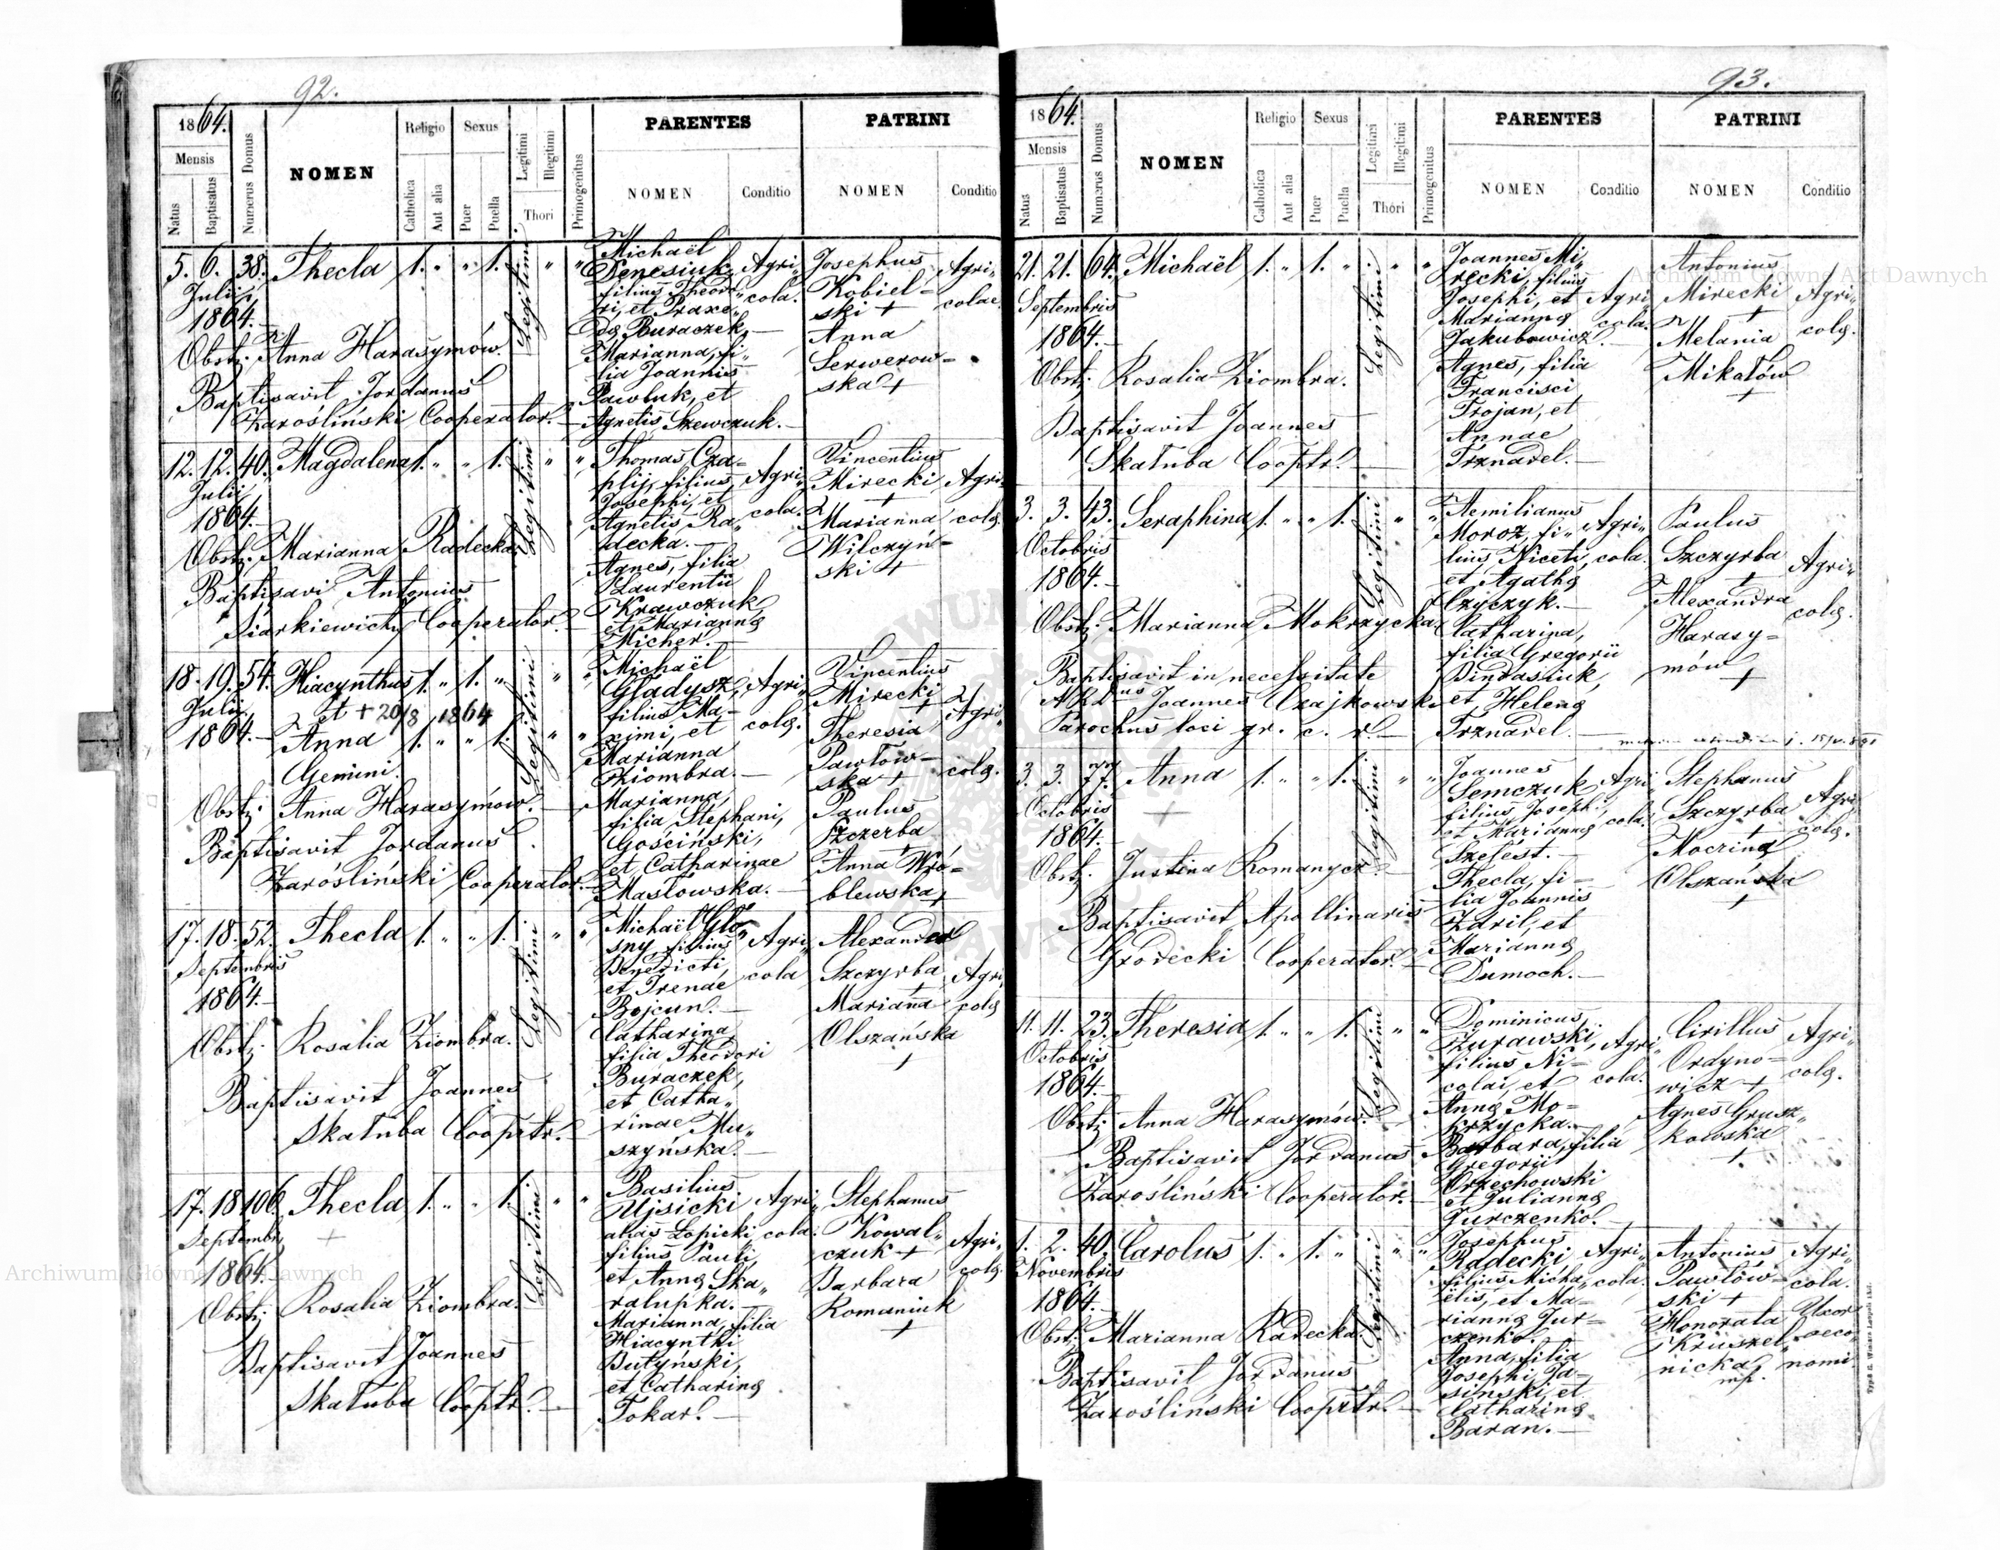 92.
1864.
Mensis
Natus
Baptisatus
Numerus Domus
NOMEN
Religio
Catholica
Aut alia
Sexus
Puer
Puella
Legitimi
Illegitimi
Thori
Primogenitus
PARENTES
NOMEN
Conditio
PATRINI
NOMEN
Conditio
5. 6. 38. Thecla 1. " " 1. " "
Julii
1864.
Obstz. Anna Harasymów.
Baptisavit Jordanus
Zarośliński Cooperator.
Legitimi
Michaël
Denesiuk,
filius Theodo„
ri, et Praxe„
dis Buraczek,
Marianna, fi„
lia Joannis
Pawluk, et
Agnetis Szewczuk.
Agri„
cola.
Josephus
Kobiel=
ski +
Anna
Serwerow=
ska +
Agri„
colae
12. 12. 40. Magdalena 1. " " 1. " "
Julii
1864.
Obstz. Marianna Radecka.
Baptisavi Antonius
Siarkiewicz Cooperator.
Legitimi
Thomas Cza=
plij, filius
Josephi, et
Agnetis Ra„
decka.
Agnes, filia
Laurentii
Krawczuk
et Marianna
Micher.
Agri„
cola.
Vincentius
Mirecki
+
Marianna
Wilczyń=
ski +
Agri„
colae.
18. 19. 54. Hiacynthus 1. " 1. " " "
Julii et + 20/8 1864
1864. Anna 1. " " 1. " "
Gemini.
Obstz. Anna Harasymów.
Baptisavit Jordanus
Zarośliński Cooperator.
Legitimi
Michaël
Gladysz,
filius Ma=
ximi, et
Marianna
Ziombra.
Marianna,
filia Stephani,
Gościński,
et Catharinae
Masłowska.
Agri„
cola.
Vincentius
Mirecki
+
Theresia
Pawłow=
ska +
Paulus
Szczerba
+
Anna Wró=
blewska +
Agri„
colae.
17. 18. 52. Thecla 1. " " 1. " "
Septembris
1864.
Obstz. Rosalia Ziombra.
Baptisavit Joannes
Skałuba Cooptr.
Legitimi
Michaël Gło„
sny filius
Benedicti,
et Irenae
Bojcun.
Catharina
filia Theodori
Buraczek,
et Catha„
rinae Mu„
szyńska.
Agri„
cola
Alexander
Szczyrba
+
Marianna
Olszańska
+
Agri„
colae
17. 18. 106. Thecla 1. " " 1. " "
Septembr.
1864.
Obstz. Rosalia Ziombra.
Baptisavit Joannes
Skałuba Cooptr.
Legitimi
Basilius
Ujsicki
alias Łopicki
filius Pauli,
et Anna Ska„
ralupka.
Marianna, filia
Hiacynthi
Butyński,
et Catharina
Tokar.
Agri„
cola.
Stephanus
Kowal„
czuk +
Barbara
Romaniuk
+
Agri„
colae
93.
1864.
Mensis
Natus
Baptisatus
Numerus Domus
NOMEN
Religio
Catholica
Aut alia
Sexus
Puer
Puella
Legitimi
Illegitimi
Thori
Primogenitus
PARENTES
NOMEN
Conditio
PATRINI
NOMEN
Conditio
21. 21. 64. Michaël 1. " 1. " " "
Septembris
1864.
Obstz. Rosalia Ziombra.
Baptisavit Joannes
Skałuba Cooptr.
Legitimi
Joannes Mi„
recki, filius
Josephi, et
Marianna
Jakubowicz.
Agnes, filia
Francisci
Trojan, et
Annae
Trznadel.
Agri„
cola.
Antonius
Mirecki
+
Melania
Mikałów
+
Agri„
colae.
3. 3. 43. Seraphina 1. " " 1. " "
Octobris
1864.
Obstz. Marianna Mokrzycka.
Baptisavit in necessitate
Joannes Czajkowski
Parochus loci gr. c. r.
Legitimi
Aemilianus
Moroz, fi„
lius Niceti,
et Agatha
Czyczyk.
Catharina,
filia Gregorii
Dindasiuk,
et Helena
Trznadel.
Agri„
cola.
Paulus
Szczyrba
+
Alexandra
Harasy=
mów
+
Agri„
colae.
3. 3. 77. Anna 1. " " 1. " "
Octobris
1864.
Obstz. Justina Romanycz.
Baptisavit Apollinaris
Grodecki Cooperator.
Legitimi
Joannes
Semczuk
filius Joseph.,
et Marianna
Szelest.
Thecla, fi=
lia Joannis
Zdril, et
Marianna
Dumoch.
Agri„
cola.
Stephanus
Szczyrba
+
Macrina
Olszanska
+
Agri„
colae.
11. 11. 23. Theresia 1. " " 1. " "
Octobris
1864.
Obstz. Anna Harasymów.
Baptisavit Jordanus
Zarośliński Cooperator.
Legitimi
Dominicus
Żurawski,
filius Ni=
colai, et
Anna Mo=
krzycka.
Barbara, filia
Gregorii
Orzechowski
et Julianna
Jurczenko.
Agri„
cola.
Cirillus
Ordyno=
wicz +
Agnes Grusz„
kowska
+
Agri„
colae.
1. 2. 40. Carolus 1. " 1. " " "
Novembris
1864.
Obstz. Marianna Radecka.
Baptisavit Jordanus
Zarośliński Cooprtr.
Legitimi
Josephus
Radecki
filius Micha„
ëlis, et Ma=
rianna Jur=
czenko.
Anna, filia
Josephi Ja=
sinski, et
Catharina
Baran.
Agri„
cola.
Antonius
Pawłów=
ski +
Honorata
Kruszel„
nicka,
mp.
Agri„
cola.
Uxor
oeco„
nomi.
Archiwum Główne Akt Dawnych
Archiwum Główne Akt Dawnych